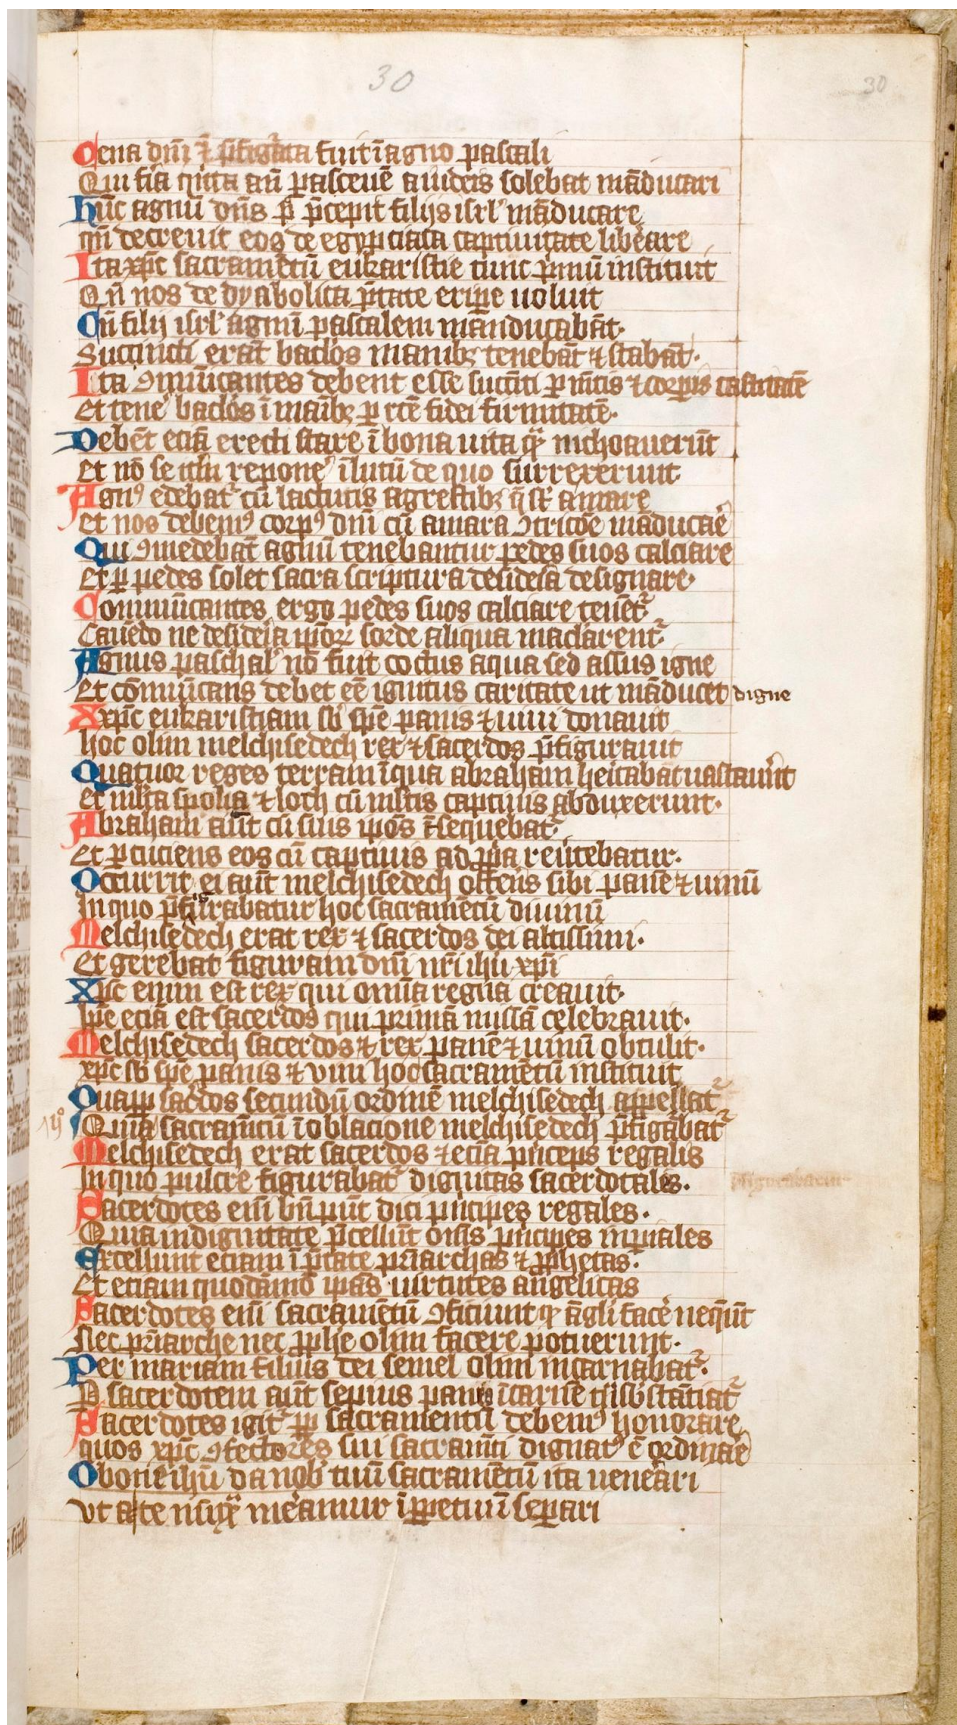 30
30
Cena dnī ⁊ p̄figᷓata fuit ī agno pascali
Qui fīa q̄rta an̄ pascēuē a iudeis solebat mādutari
Hūc agnū dn̄s p̄cepit filijs isrl' māducare
qn̄ decreuit eos de egypciaca captiuitate libērare
Ita xp̄c sacramētū eukaristie tunc p̄mū instituit
Qn̄ nos de dyabolica p̄tate eripe uoluit
Cū filij isrl' agnū pascalem manducabāt·
Succincti erāt baclos manibꝫ tenebāt ⁊ stabāt·
Ita ꝯmūicantes debent esse succīti ꝑ mētis ⁊ corpis castitatē
Et tene' baclos ī maibꝫ ꝑ rcē fidei firmitatē·
Debēt eciā erecti stare ī bona uita qᷓ inchoauerūt
Et nō se it̄m repone' ī lutū de quo surrexerunt
Agn⁹ edebat᷑ cū lactucis agrestibꝫ q̄ st̄ amare
Et nos debem⁹ corp⁹ dnī cū amara ꝯtricōe māducare
Qui ꝯmedebāt agnū tenebantur pedes suos calciare
Et ꝑ pedes solet sacra scriptura desidēia designare·
Commūicantes ergo pedes suos calciare tenēt᷑
Cauēdo ne desidēia ip̄oꝝ sorde aliqua maclarent᷑
Agnus paschal' nō fuit coctus aqua sed assus igne
Et cōmūicans debet eē ignitus caritate ut māducet digne
Xp̄c eukaristiam sb̄ spē panis ⁊ uini donauit
hoc olim melchisedech rex ⁊ sacerdos p̄figurauit
Quatuor reges terram ī qua abraham h̄itabat uastauer̄t
Et mlta spolia ⁊ loth cū mltis captiuis abduxerunt·
Abraham aūt cū suis ip̄os īsequebat᷑
Et ꝑcuciens eos cū captiuis ad ꝓpia reūtebatur·
Occurrit ei aūt melchisedech offens sibi panē ⁊ uinū
In quo p̄figurabatur hoc sacramētū diuinū
Melchisedech erat rex ⁊ sacerdos dei altissimi·
Et gerebat figuram dnī nrī ihū xpī
Xp̄c enim est rex qui omīa regna creauit·
Ip̄e eciā est sacerdos qui primā missā celebrauit·
Melchisedech sacerdos ⁊ rex panē ⁊ uinū obtulit·
xp̄c sb̄ spē panis ⁊ vini hoc sacramētū instituit
Quaꝓp̄ sac̄dos secundū ordinē melchisedech appellat᷑
Quia sacramētū ī oblacione melchisedech p̄figābat᷑
Melchisedech erat sacerdos ⁊ eciā p̄nceps regalis
In quo pulcre figurabat᷑ dignitas sacerdotalis·
p̄figurabatur
Sacerdotes enī bn̄ pn̄t dici p̄ncipes regales·
Quia in dignitate p̄cellūt om̄s p̄ncipes imꝑiales
Excellunt eciam ī p̄tate pr̄iarchas ⁊ ꝓphetas·
Et eciam quodāmō ip̄as uirtutes angelicas
Sacerdotes enī sacramētū ꝯficiunt qᷓ āgli facē neq̄ūt
Nec pr̄iarche nec ꝓphe olim facere potuerunt·
Per mariam filius dei semel olim incarnabat᷑·
P sacerdotem aūt sepius panis ī carnē tⁿsb̄stātiat᷑
Sacerdotes igit᷑ ꝓp̄ sacramentū debem⁹ honorare
quos xp̄c ꝯfectores sui sacramēti dignat⁹ ē ordinare
O bone ihū da nob' tuū sacramētū ita uenēari
vt a te nūqᷓ meamur ī ꝑpetuū separi